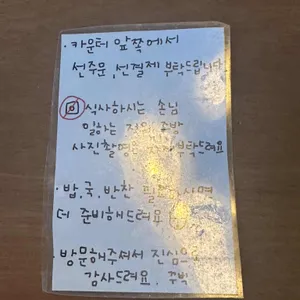 · 카운터 앞쪽에서
선주문, 선결제 부탁드립니다
식사하시는 손님
일하는 저희 주방
사진촬영은 부탁드려요
· 밥, 국, 반찬
더 준비해드려요
· 방문해주셔서 진심으로
감사드려요. 꾸벅